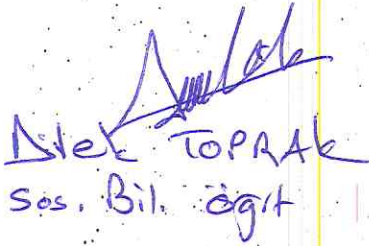 Dilek TOPRAK
Sos. Bil. öğrt